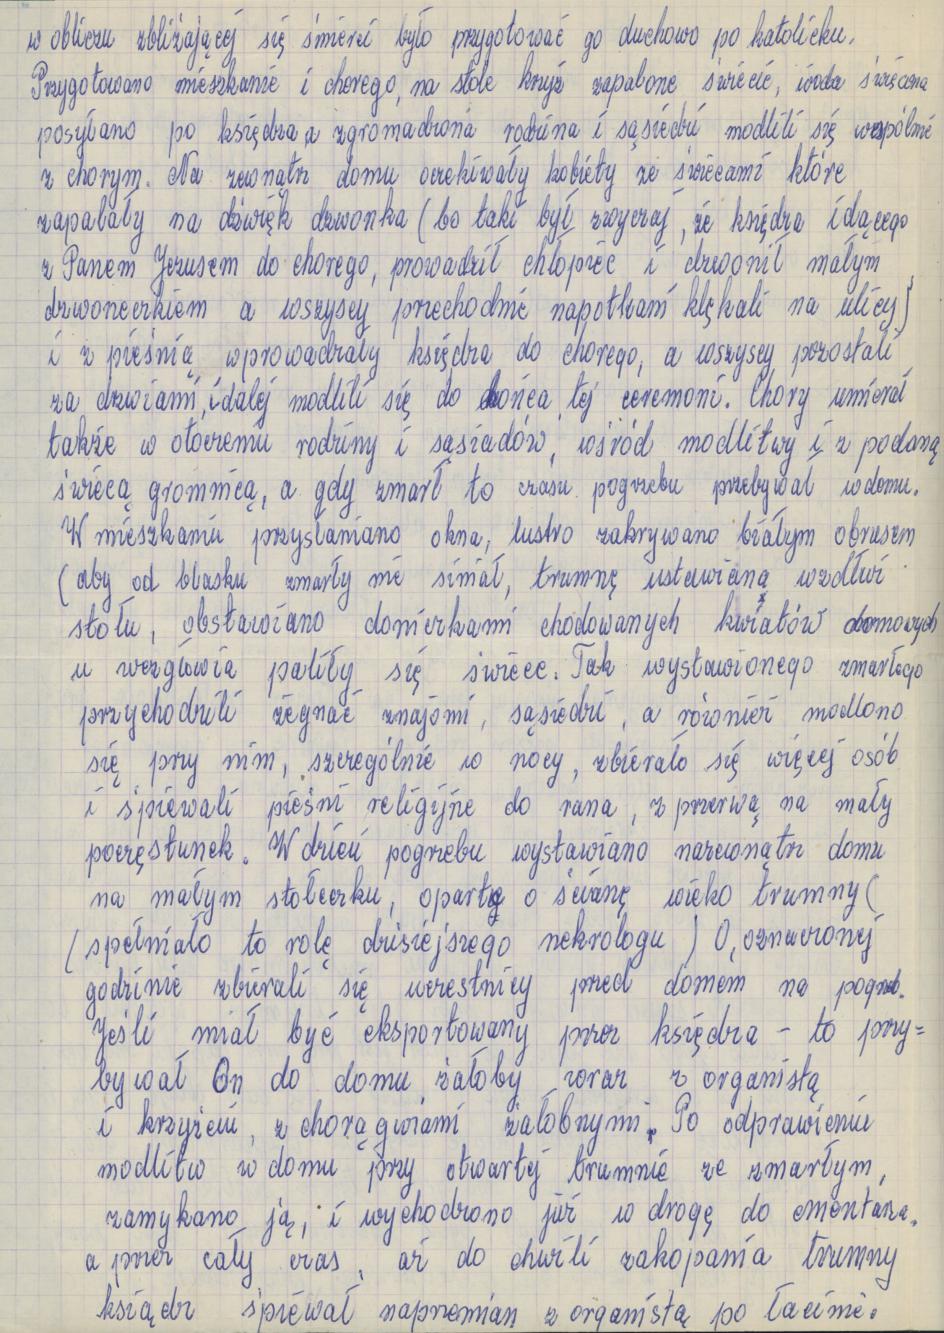 w obliczu zbliżającej się śmierci było przygotować go duchowo po katolicku.
Przygotowano mieszkanie i chorego, na stole krzyż zapalone świecie, woda święcona
posyłano po księdza, a zgromadzona rodzina i sąsiedzi modlili się wspólnie
z chorym. Na zewnątrz domu oczekiwały kobiety ze świecami które
zapalały na dźwięk dzwonka (bo taki był zwyczaj, że księdza idącego
z Panem Jezusem do chorego, prowadził chłopiec i dzwonił małym
dzwoneczkiem a wszyscy przechodnie napotkani klękali na ulicy)
i z pieśnią wprowadzały księdza do chorego, a wszyscy pozostali
za drzwiami, i dalej modlili się do końca tej ceremoni. Chory umierał
także w otoczeniu rodziny i sąsiadów, wśród modlitwy i z podaną
świecą gromnicą, a gdy zmarł to czasu pogrzebu przebywał w domu.
W mieszkaniu przysłaniano okna, lustro zakrywano białym obrusem
(aby od blasku zmarły nie siniał, trumnę ustawianą wzdłuż
stołu, obstawiano doniczkami chodowanych kwiatów domowych
u wezgłowia paliły się świece. Tak wystawionego zmarłego
przychodzili żegnać znajomi, sąsiedzi, a również modlono
się przy nim, szczególnie w nocy, zbierało się więcej osób
i śpiewali pieśni religijne do rana, z przerwą na mały
poczęstunek. W dzień pogrzebu wystawiano nazewnątrz domu
na małym stołeczku, oparte o ścianę wieko trumny (
(spełniało to rolę dzisiejszego nekrologu) O, oznaczonej
godzinie zbierali się uczestnicy przed domem na pogrzeb.
Jeśli miał być eksportowany przez księdza – to przy=
bywał On do domu żałoby wraz z organistą
i krzyżem, z chorągwiami żałobnymi. Po odprawieniu
modlitw w domu przy otwartej trumnie ze zmarłym,
zamykano ją, i wychodzono już w drogę do cmentarza.
a przez cały czas, aż do chwili zakopania trumny
ksiądz śpiewał naprzemian z organistą po łacinie.